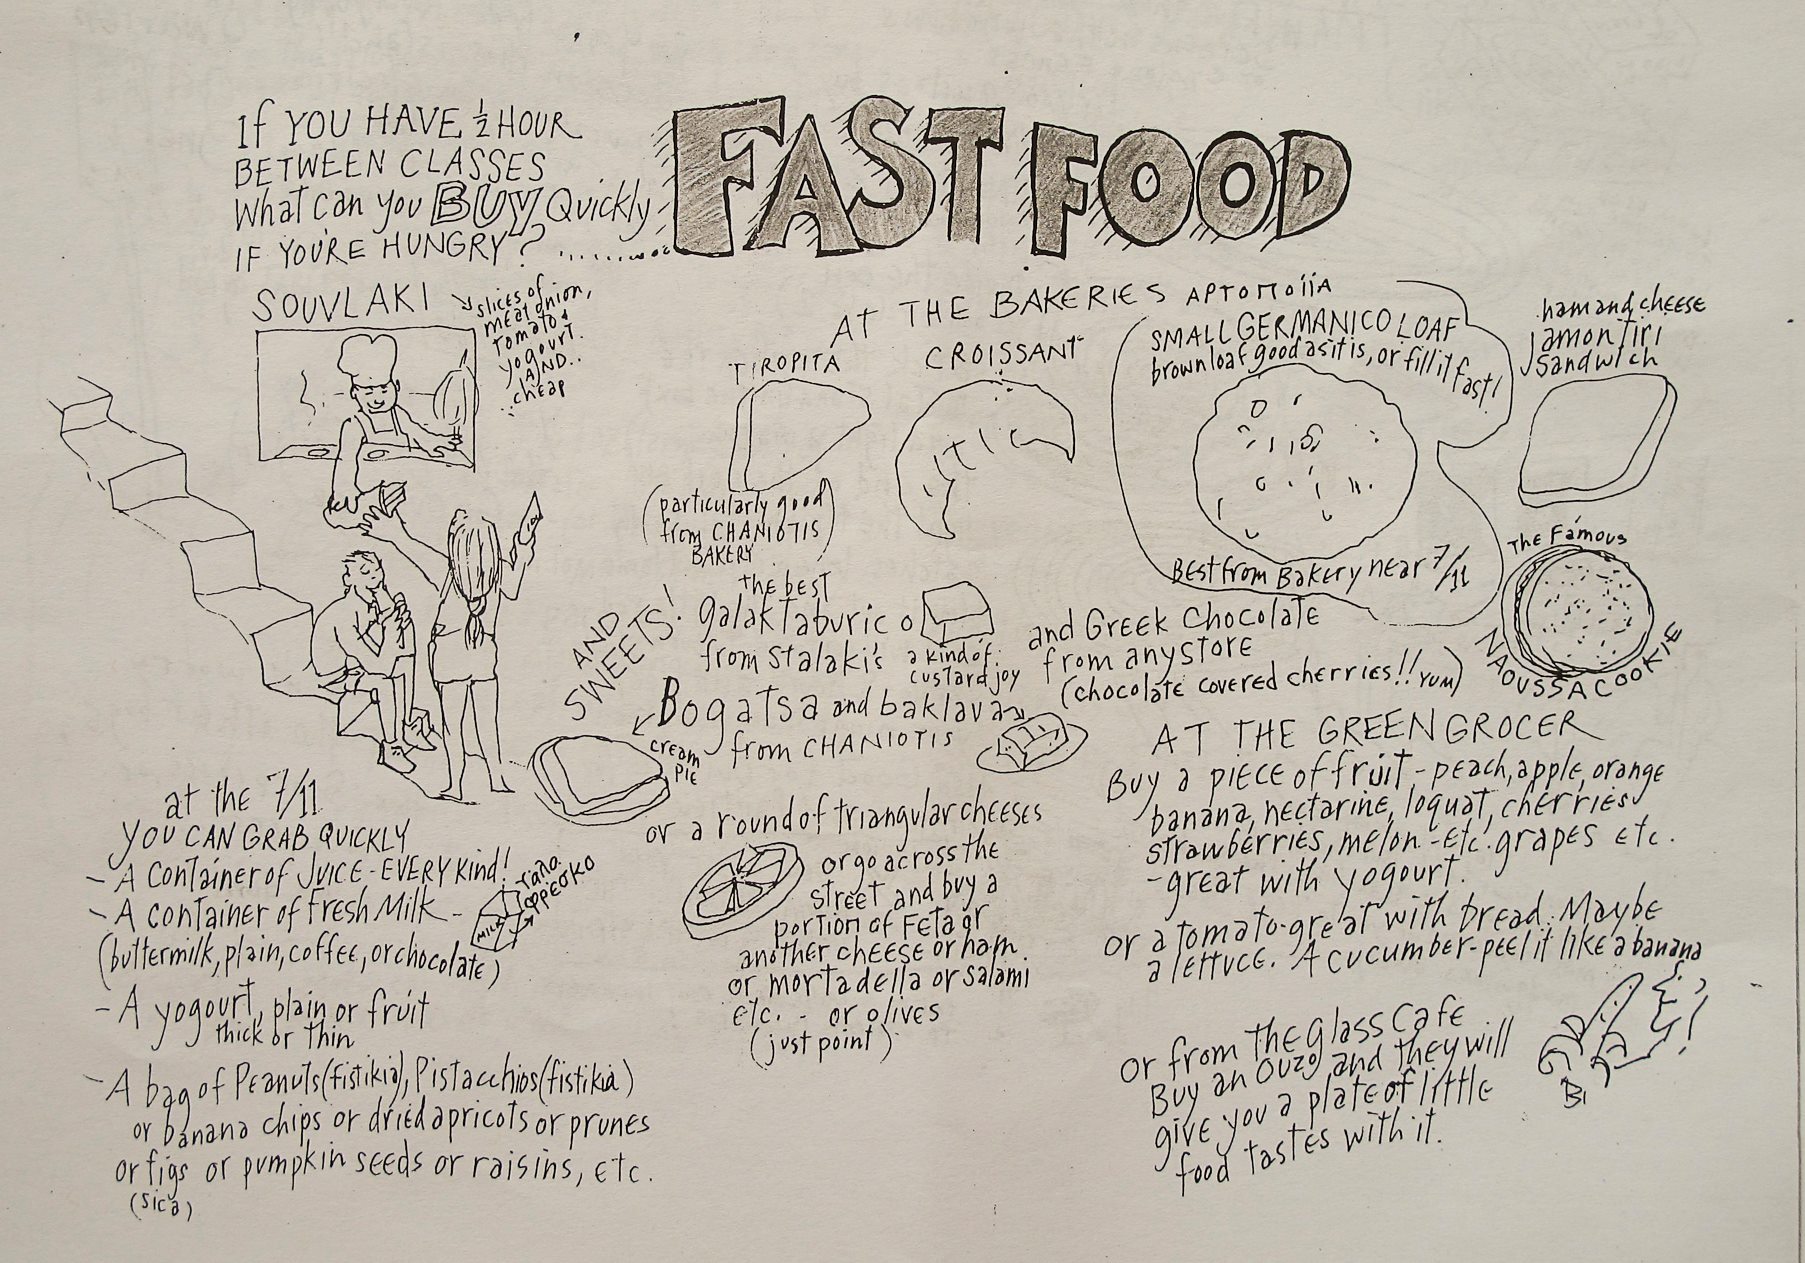 If YOU HAVE ½ HOUR
BETWEEN CLASSES
What can you BUY Quickly
IF YOU'RE HUNGRY? ..........
FAST FOOD
SOUVLAKI
slices of
meat onion,
tomato &
yogourt.
AND..
..cheap
AT THE BAKERIES ΑΡΤΟΠΟΙΙΑ
TIROPITA
(particularly good
from CHANIOTIS
BAKERY)
CROISSANT
SMALL GERMANICO LOAF
brown loaf good as it is, or fill it fast!
Best from Bakery near 7/11
ham and cheese
jamon Tiri
Sandwich
The Famous
NAOUSSA COOKIE
AND
SWEETS!
the best
galaktaburico
from Stalaki's
a kind of
custard joy
and Greek Chocolate
from any store
(chocolate covered cherries!! YUM)
Bogatsa and baklava
from CHANIOTIS
cream
PIE
or a round of triangular cheeses
or go across the
street and buy a
portion of Feta or
another cheese or ham
or mortadella or salami
etc. - or olives
(just point)
at the 7/11
YOU CAN GRAB QUICKLY
- A Container of JUICE - EVERY Kind!
- A container of fresh Milk -
MILK
γαλα
φρεσκο
(buttermilk, plain, coffee, or chocolate)
- A yogourt, plain or fruit
thick or thin
- A bag of Peanuts (fistikia), Pistacchios (fistikia)
or banana chips or dried apricots or prunes
or figs or pumpkin seeds or raisins, etc.
(sica)
AT THE GREENGROCER
Buy a piece of fruit - peach, apple, orange
banana, nectarine, loquat, cherries
strawberries, melon - etc. grapes etc.
- great with yogourt.
or a tomato - great with bread. Maybe
a lettuce. A cucumber - peel it like a banana
or from the Glass Cafe
Buy an Ouzo and they will
give you a plate of little
food tastes with it.